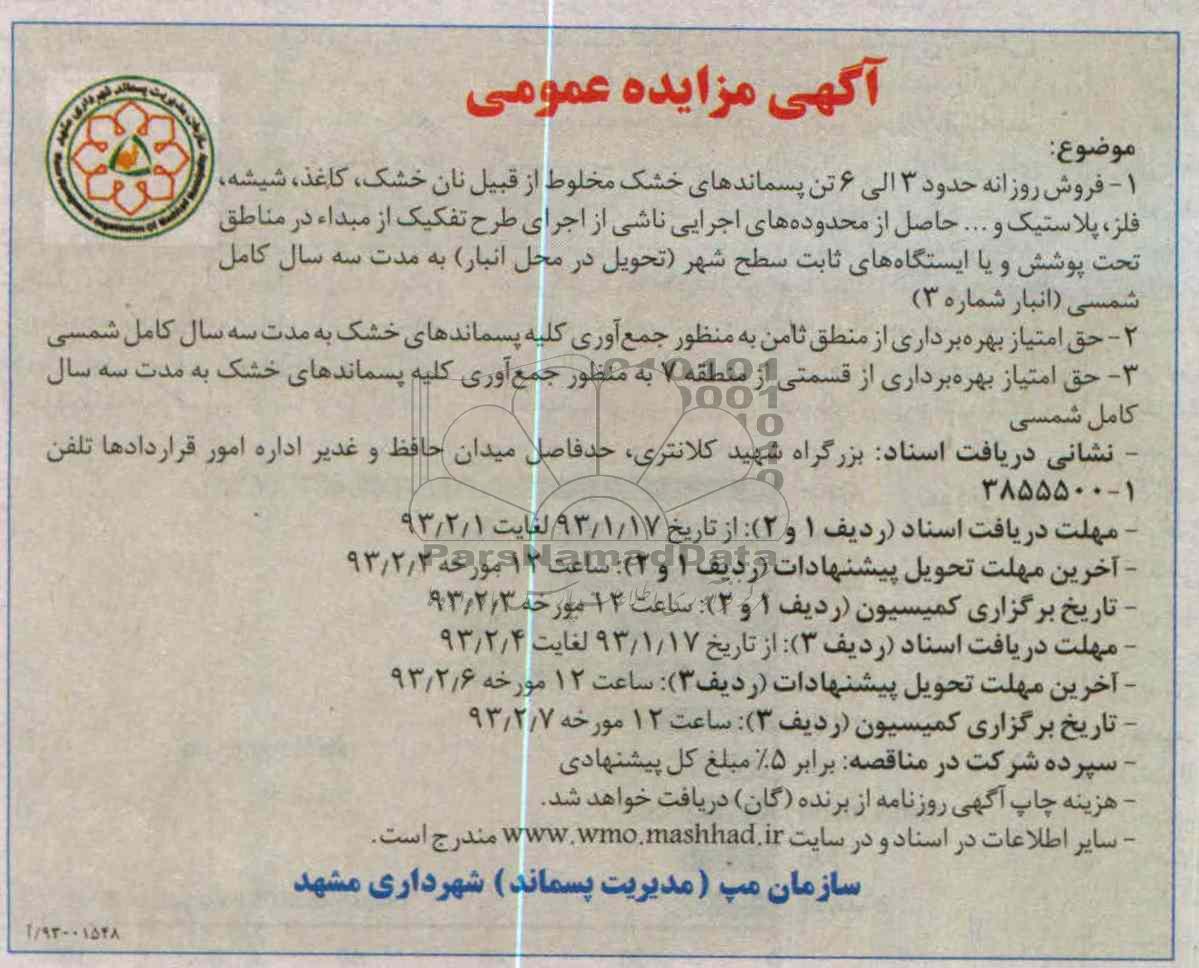 آگهی مزایده عمومی
سازمان مدیریت پسماند شهرداری مشهد
Waste Management Organization Of Mashhad Municipality
موضوع:
۱- فروش روزانه حدود ۳ الی ۶ تن پسماندهای خشک مخلوط از قبیل نان خشک، کاغذ، شیشه،
فلز، پلاستیک و ... حاصل از محدوده‌های اجرایی ناشی از اجرای طرح تفکیک از مبداء در مناطق
تحت پوشش و یا ایستگاه‌های ثابت سطح شهر (تحویل در محل انبار) به مدت سه سال کامل
شمسی (انبار شماره ۳)
۲- حق امتیاز بهره‌برداری از منطق ثامن به منظور جمع‌آوری کلیه پسماندهای خشک به مدت سه سال کامل شمسی
۳- حق امتیاز بهره‌برداری از قسمتی از منطقه ۷ به منظور جمع‌آوری کلیه پسماندهای خشک به مدت سه سال
کامل شمسی
- نشانی دریافت اسناد: بزرگراه شهید کلانتری، حدفاصل میدان حافظ و غدیر اداره امور قراردادها تلفن
۳۸۵۵۵۰۰-۱
- مهلت دریافت اسناد (ردیف ۱ و ۲): از تاریخ ۹۳/۱/۱۷ لغایت ۹۳/۲/۱
- آخرین مهلت تحویل پیشنهادات (ردیف ۱ و ۲): ساعت ۱۲ مورخه ۹۳/۲/۲
- تاریخ برگزاری کمیسیون (ردیف ۱ و ۲): ساعت ۱۲ مورخه ۹۳/۲/۳
- مهلت دریافت اسناد (ردیف ۳): از تاریخ ۹۳/۱/۱۷ لغایت ۹۳/۲/۴
- آخرین مهلت تحویل پیشنهادات (ردیف۳): ساعت ۱۲ مورخه ۹۳/۲/۶
- تاریخ برگزاری کمیسیون (ردیف ۳): ساعت ۱۲ مورخه ۹۳/۲/۷
- سپرده شرکت در مناقصه: برابر ۵٪ مبلغ کل پیشنهادی
- هزینه چاپ آگهی روزنامه از برنده (گان) دریافت خواهد شد.
- سایر اطلاعات در اسناد و در سایت www.wmo.mashhad.ir مندرج است.
سازمان مپ (مدیریت پسماند) شهرداری مشهد
۹۳۰۰۱۵۴۸/آ
ParsNamadData